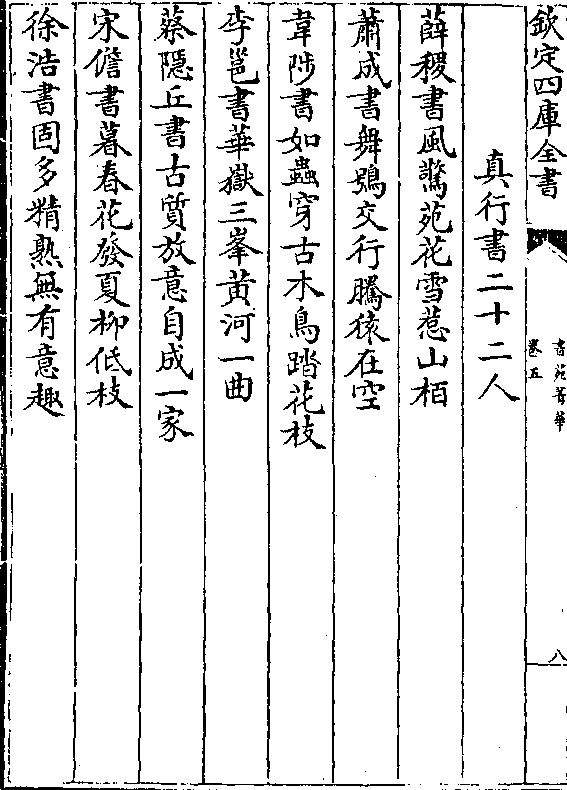 欽定四庫全書
書苑菁華
卷五
八
真行書二十二人
薛稷書風驚苑花雪惹山栢
蕭成書舞鴉交行騰猿在空
韋陟書如蟲穿古木鳥踏花枝
李邕書華嶽三峯黃河一曲
蔡隱丘書古質放意自成一家
宋儋書暮春花發夏柳低枝
徐浩書固多精熟無有意趣